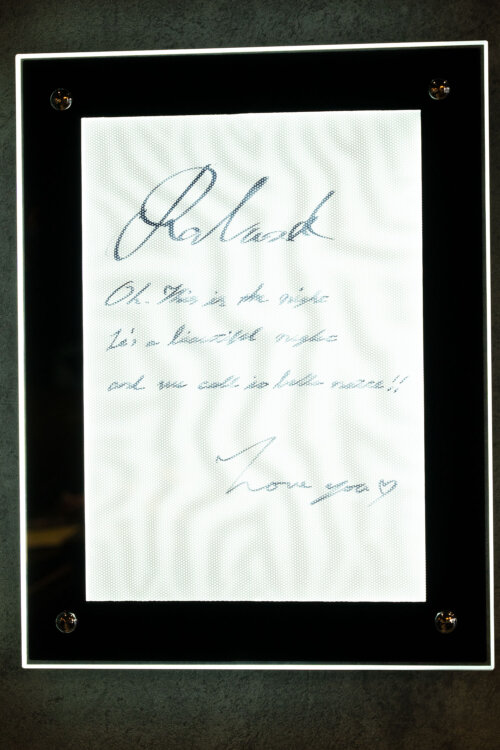 Oh. This is the night
It's a beautiful night
and we call it bella notte!!
Love you♡